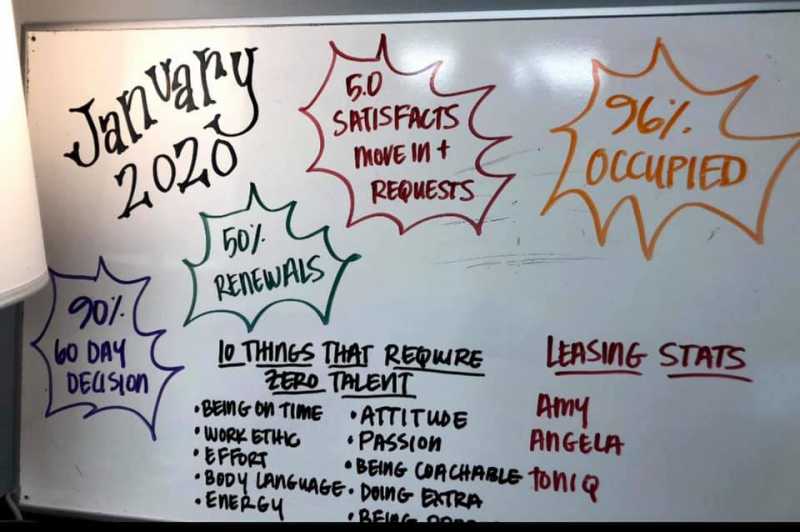 January
2020
5.0
SATISFACTS
MOVE IN +
REQUESTS
96%
OCCUPIED
50%
RENEWALS
90%
60 DAY
DECISION
10 THINGS THAT REQUIRE
ZERO TALENT
• BEING ON TIME
• WORK ETHIC
• EFFORT
• BODY LANGUAGE
• ENERGY
• ATTITUDE
• PASSION
• BEING COACHABLE
• DOING EXTRA
• BEING
LEASING STATS
AMY
ANGELA
TONIQ